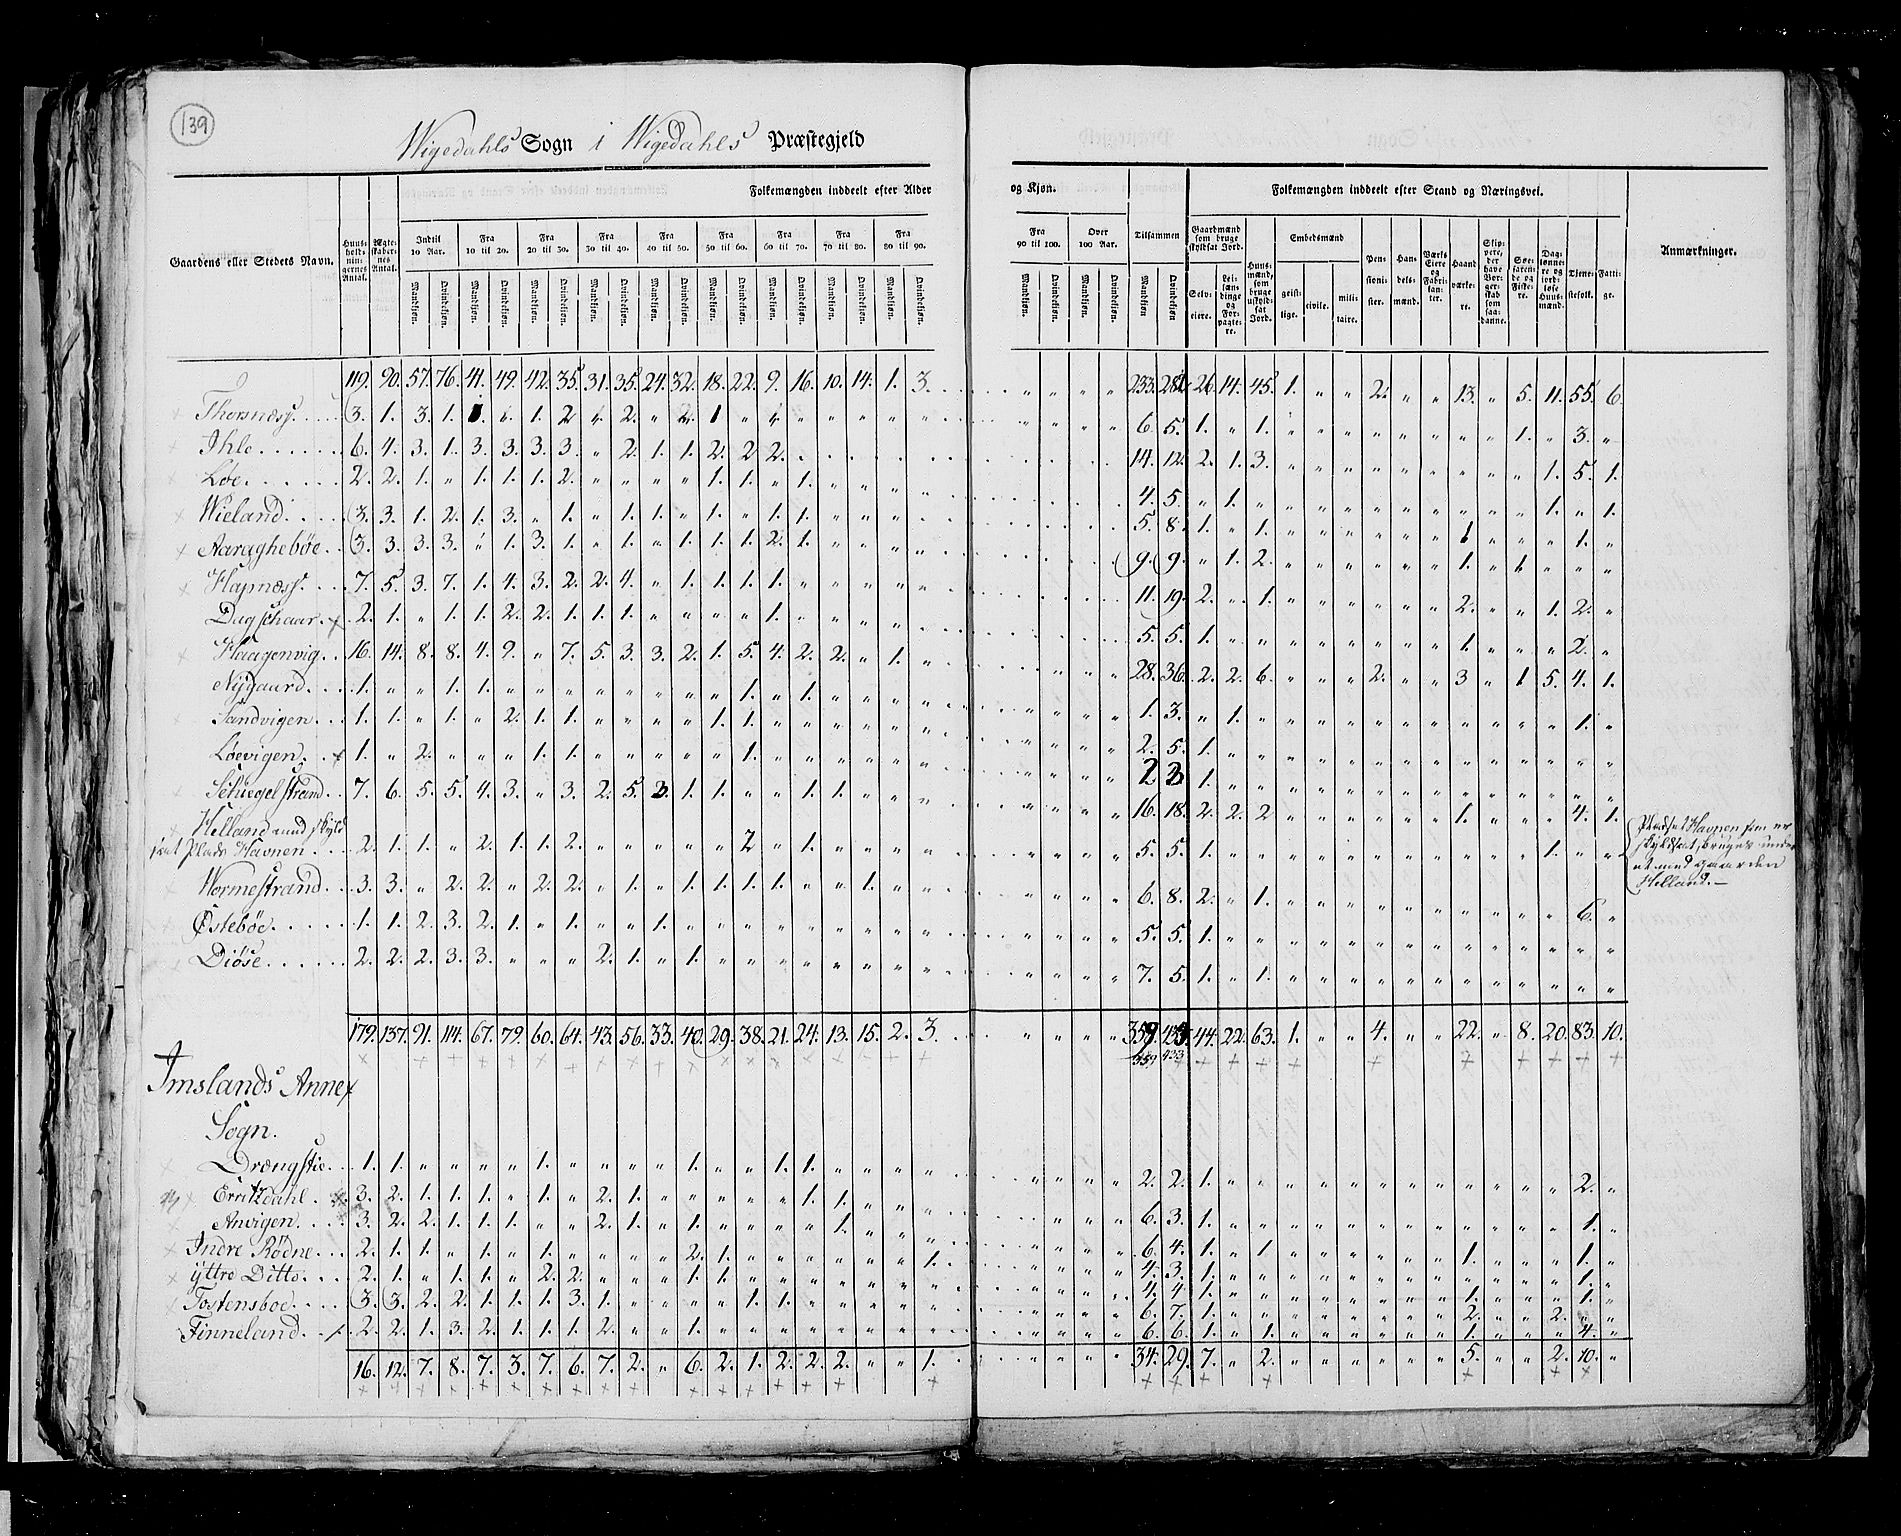 139
Wigedahls Sogn i Wigedahls Præstegjeld
Gaardens eller Stedets Navn.
Huus-holdningernes Antal.
Ægteskabernes Antal.
Folkemængden inddeelt efter Alder og Kjøn.
Indtil 10 Aar. Fra 10 til 20. Fra 20 til 30. Fra 30 til 40. Fra 40 til 50. Fra 50 til 60. Fra 60 til 70. Fra 70 til 80. Fra 80 til 90. Fra 90 til 100. Over 100 Aar. Tilsammen
Mandkjøn. Qvindekjøn.
Folkemængden inddeelt efter Stand og Næringsvei.
Gaardmænd som bruge skyldsat Jord. Selveiere. Leilændinge og Forpagtere.
Huusmænd, som bruge uskyldsat Jord.
Embedsmænd geistlige. civile. militaire.
Pensionister. Handelsmænd. Værks Eiere og Fabrikanter. Haandværkere.
Skippere, der have Borgerskab som saadanne.
Søefarende og Fiskere.
Daglønnere og jordløse Huusmænd.
Tjenestefolk. Fattige.
Anmærkninger.
119. 90. 57. 76. 41. 49. 42. 35. 31. 35. 24. 32. 18. 22. 9. 16. 10. 14. 1. 3. 233. 26. 14. 45. 1. 2. 13. 5. 11. 55. 6.
Thorsnæss. 3. 1. 3. 1. 6. 5. 1. 1. 1. 3.
Ihle. 6. 4. 3. 1. 3. 3. 3. 3. 2. 1. 1. 2. 2. 2. 14. 12. 2. 1. 3. 1. 5. 1.
Løe. 2. 2. 1. 1. 1. 1. 2. 1. 1. 1. 4. 5. 1. 1. 1.
Wieland. 3. 3. 1. 2. 1. 3. 1. 1. 1. 1. 1. 1. 5. 8. 1. 1. 1. 1.
Aaraghebøe. 3. 3. 3. 3. 1. 3. 1. 1. 1. 1. 1. 2. 1. 9. 9. 1. 2. 1. 1.
Hapnæss. 7. 5. 3. 7. 1. 4. 3. 2. 2. 4. 1. 1. 1. 1. 11. 19. 2. 1. 2. 1. 2.
Dagschaar. 2. 1. 1. 1. 2. 2. 1. 1. 1. 1. 5. 5. 1. 1. 2.
Haagenvig. 16. 14. 8. 8. 4. 9. 7. 5. 3. 3. 2. 1. 5. 4. 2. 2. 1. 28. 36. 2. 2. 6. 2. 3 1 5. 4. 1.
Nÿgaard. 1. 1. 1. 1. 1. 1. 3. 1. 1.
Sandvigen. 1. 1. 1. 2. 1. 1. 1. 1. 2. 5. 1.
Løevigen. 1. 2. 1. 1. 1. 2 3 1.
Schiegelstrand. 7. 6. 5. 5. 4. 3. 3. 2. 5. 1. 1. 1. 1. 16. 18. 2. 2. 2 1. 4. 1.
Helland med skyld
sat Plads Havnen. 2. 1. 1. 2. 1. 1. 2. 2 1. 5. 5. 1. 1.
Pladset Havnen som er
skyldsat, bruges under
et med gaarden
Helland.—
Wormestrand. 3. 3. 2. 2. 2. 2. 1. 1. 1. 1. 1. 1. 6. 8. 2. 1. 6.
Østebøe. 1. 1. 2. 3. 2. 1. 1. 1. 5. 5. 1.
Diöse. 2. 2. 2. 3. 3. 2. 1. 1. 7. 5. 1. 1.
179. 137. 91. 114. 67. 79. 60. 64. 43. 56. 33. 40. 29. 38. 21. 24. 13. 15. 2. 3. 359 433. 44. 22. 63. 1. 4. 22. 8. 20. 83. 10.
359 433
Imslands Annex
Sogn.
Drengstie. 1. 1. 1. 1. 1. 1. 2. 2. 1. 2.
Erritzdahl. 3. 2. 1. 1. 1. 1. 2. 1. 1. 1. 6. 3. 1. 1.
Anvigen. 3. 2. 2. 1. 1. 1. 2. 1. 1. 1. 6. 4. 1. 1 1. 1.
Indre Rødne. 2. 1. 1. 1. 1. 2. 1. 1. 4. 3. 1. 1.
ÿttre Ditto. 2. 1. 1. 1. 2. 2. 1. 1. 4. 4. 1. 1. 1.
Tostensboe. 3. 3. 2. 2. 1. 1. 1. 3. 1. 1. 1. 6. 7. 1. 2. 2.
Finneland. 2. 2. 1. 3. 2. 1. 1. 1. 2. 1. 6. 6. 1. 1. 1. 4.
16. 12. 7. 8. 7. 3. 7. 6. 7. 2. 6. 2. 1. 2. 2. 2. 1. 34. 29. 7. 2. 5. 2. 10.